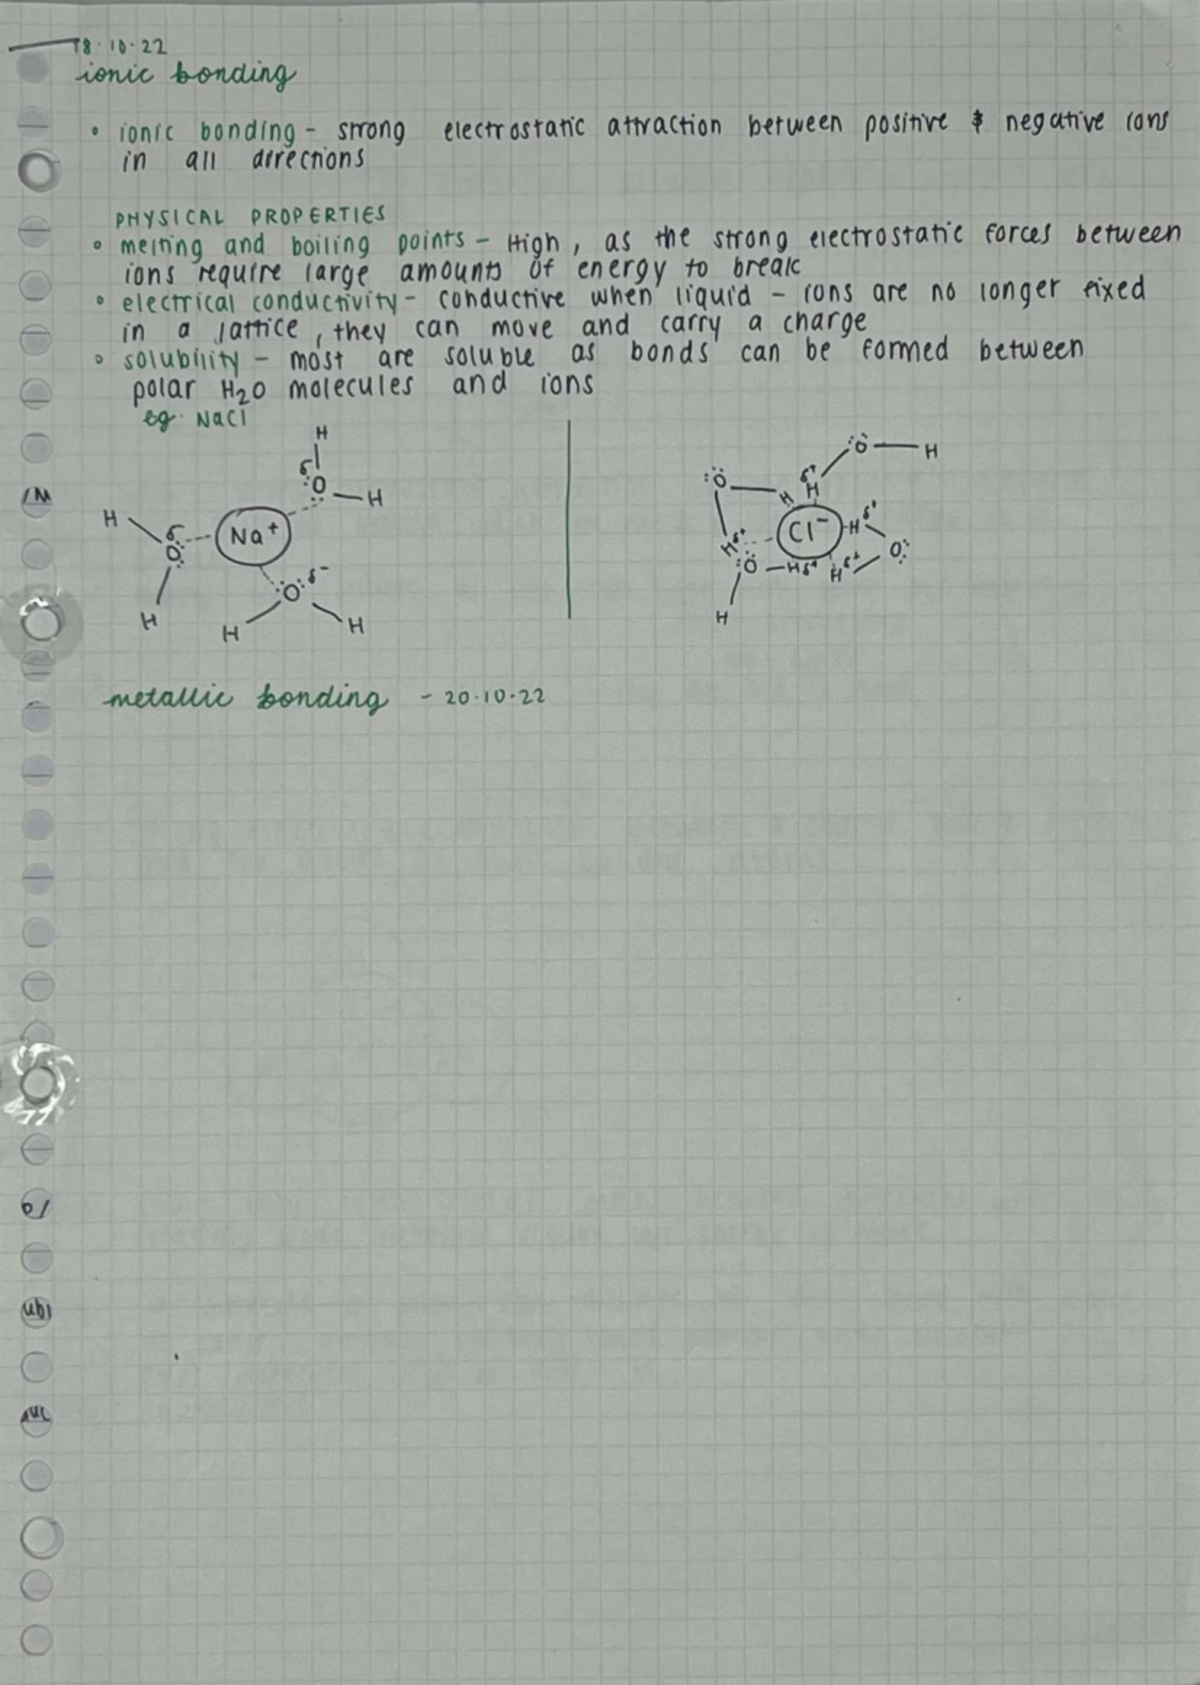 18.10.22
ionic bonding
• ionic bonding - strong electrostatic attraction between positive & negative ions
in all directions
PHYSICAL PROPERTIES
• melting and boiling points - High, as the strong electrostatic forces between
ions require large amounts of energy to break
• electrical conductivity - conductive when liquid - ions are no longer fixed
in a lattice, they can move and carry a charge
• solubility - most are soluble as bonds can be formed between
polar H₂O molecules and ions
eg. NaCl
H
δ⁻
:O
H
H
δ⁻
O:
Na⁺
:O:
δ⁻
H
H
H
:Ö
H
:Ö
H
δ⁺
H
Cl⁻
H
δ⁺
O:
Hδ⁺
:Ö
Hδ⁺
Hδ⁺
H
metallic bonding - 20.10.22